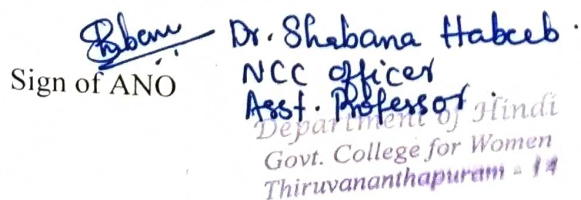 Shabana Dr. Shabana Habeeb.
Sign of ANO NCC Officer
Asst. Professor.
Department of Hindi
Govt. College for Women
Thiruvananthapuram - 14